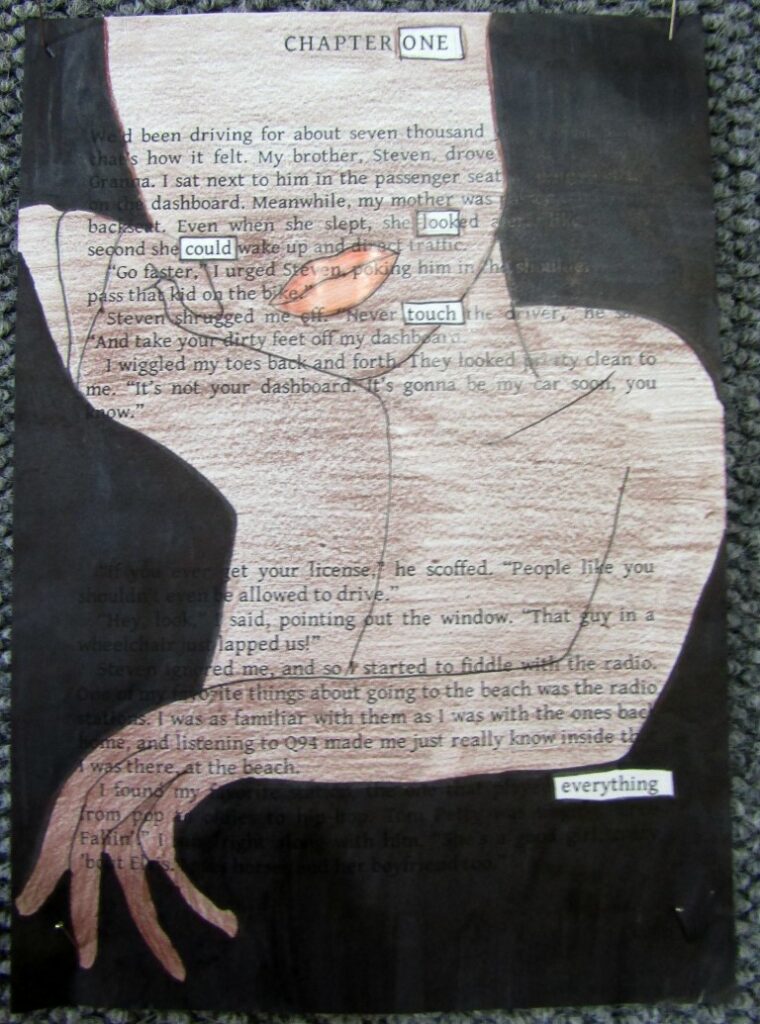 CHAPTER ONE
We'd been driving for about seven thousand
that's how it felt. My brother, Steven, drove
Granna. I sat next to him in the passenger seat
on the dashboard. Meanwhile, my mother was
backseat. Even when she slept, she looked
second she could wake up and direct traffic.
"Go faster," I urged Steven, poking him in the shoulder.
pass that kid on the bike."
Steven shrugged me off. "Never touch the driver," he
"And take your dirty feet off my dashboard.
I wiggled my toes back and forth. They looked pretty clean to
me. "It's not your dashboard. It's gonna be my car soon, you
know."
"If you ever get your license," he scoffed. "People like you
shouldn't even be allowed to drive."
"Hey, look," I said, pointing out the window. "That guy in a
wheelchair just lapped us!"
Steven ignored me, and so I started to fiddle with the radio.
One of my favorite things about going to the beach was the radio
stations. I was as familiar with them as I was with the ones back
home, and listening to Q94 made me just really know inside that
I was there, at the beach.
everything
I found my favorite station, the one that played
from pop to oldies to hip-hop. Tom Petty was
Fallin'." I right along with him. "She's a good girl, crazy
'bout Elvis. horses and her boyfriend too."